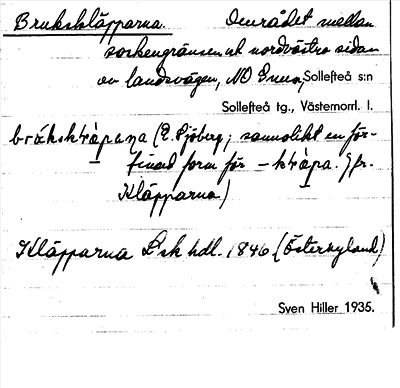 Brukskläpparna. Området mellan
sockengränsen och nordvästra sidan
av landsvägen, NO Önsta, Sollefteå s:n
Sollefteå tg., Västernorrl. l.
(E. Sjöberg; sannolikt en för-
finad form för
Kläpparna)
Kläpparna Lsk hdl. 1846 (Östernyland)
Sven Hiller 1935.